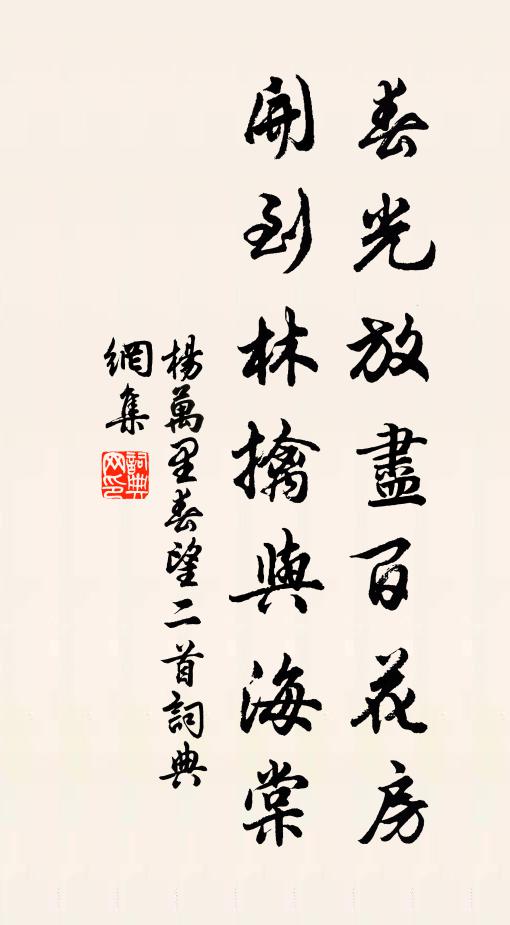 春光放盡百花房
開到林擒與海棠
楊萬里春望二首詞典
網集
詞典
网印